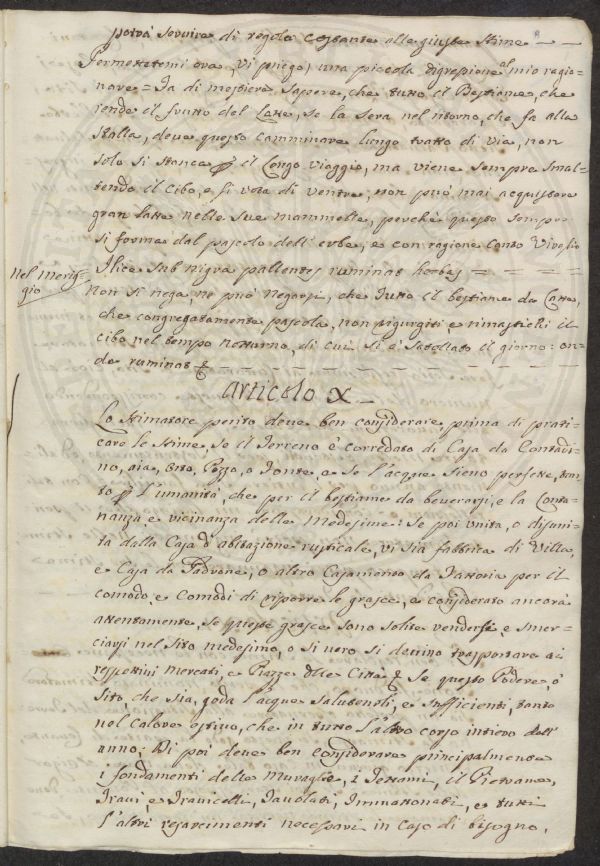 potrà servire di regola costante alle giuste stime — —
Permettetemi ora (vi priego) una piccola digressione al mio ragio-
nare = Fa di mestiere sapere, che tutto il Bestiame, che
rende il frutto del Latte, se la sera nel ritorno, che fa alla
stalla, deve questo camminare lungo tratto di via, non
solo si stanca p il longo viaggio, ma viene sempre smal=
tendo il cibo, e si vota di ventre, non può mai acquistare
gran latte nelle sue mammelle, perchè questo sempre
si forma dal pascolo dell'erbe; e con ragione cantò Virgilio
Nel Merig-
gio
Ilice sub nigra pallentes ruminat herbas = = = =
Non si nega, ne può negarsi, che tutto il bestiame da Latte,
che congregatamente pascola, non rigurgiti e rimastichi il
cibo nel tempo notturno, di cui si è satollato il giorno: on=
de ruminat &
Articolo X —
Lo stimatore perito deve ben considerare, prima di prati=
care le stime, se il Terreno è corredato di Casa da Contadi=
no, aia, orto, Pozzo, o Fonte, e se l'acque sieno perfette, tan=
to p l'umanità, che per il bestiame da beverarsi, e la lonta=
nanza, e vicinanza delle medesime: se poi unita, o disuni=
ta dalla Casa d'abitazione rusticale, vi sia fabbrica di Villa,
e Casa da Padrone, o altro Casamento da Fattoria per il
comodo, e comodi di riporre le grasce, e considerato ancora
attentamente, se queste grasce sono solite vendersi, e smer=
ciarsi nel sito medesimo, o si vero si devino trasportare ai
respettivi mercati, e Piazze delle Città & Se questo Podere, o
sito che sia, goda l'acque salutevoli, e sufficienti, tanto
nel calore estivo, che in tutto l'altro corso intiero dell'
anno: Di poi deve ben considerare principalmente
i fondamenti delle muraglie, i Tettami, il Pietrame,
Travi, e Travicelli, Tavolati, Immattonati, e tutti
l'altri resarcimenti necessari in caso di bisogno,